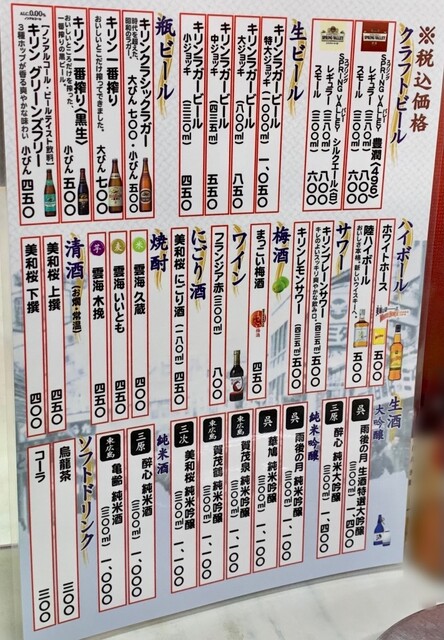 ※税込価格
クラフトビール
スプリングバレー
SPRING VALLEY 豊潤〈496〉
レギュラー
スモール
スプリングバレー
SPRING VALLEY シルクエール〈白〉
レギュラー
スモール
生ビール
キリンラガービール
特大ジョッキ (一〇〇〇ml) 一、〇五〇
キリンラガービール
大ジョッキ (八〇〇ml) 八五〇
キリンラガービール
中ジョッキ (四三五ml) 五五〇
キリンラガービール
小ジョッキ (三三〇ml) 四五〇
瓶ビール
時代を超えた、昭和のラガー。
キリンクラシックラガー
大びん 七〇〇・小びん 五五〇
おいしいとこだけ搾ってできました。
キリン 一番搾り 大びん 七〇〇
おいしいところだけを搾った、一番搾りの黒。
キリン 一番搾り〈黒生〉 小びん 五〇〇
ALC.0.00%
ノンアルコール・ビールテイスト飲料
キリン グリーンズフリー 小びん 四五〇
3種ホップが香る爽やかな味わい
ハイボール
ホワイトホース 四五〇
おいしさ本格、新しいウイスキーへ。
陸ハイボール 五〇〇
サワー
キレのよいスッキリ爽やかな飲み口。
キリンプレーンサワー (四三五ml) 五〇〇
キリンレモンサワー (四三五ml) 五〇〇
梅酒
まっこい梅酒 四五〇
ワイン
フランジア赤 (三〇〇ml) 八〇〇
にごり酒
美和桜 にごり酒 (一八〇ml) 四五〇
焼酎
雲海 久蔵 四五〇
麦 雲海 いいとも 四五〇
芋 雲海 木挽 四五〇
清酒 (お燗・常温)
美和桜 上撰 四五〇
美和桜 下撰 四〇〇
生酒
大吟醸
呉 雨後の月 生酒特選大吟醸 (三〇〇ml)
三原 酔心 純米大吟醸 (三〇〇ml)
純米吟醸
呉 雨後の月 純米吟醸 (三〇〇ml) 一、一〇〇
呉 華鳩 純米吟醸 (三〇〇ml) 一、一〇〇
東広島 賀茂泉 純米吟醸 (三〇〇ml) 一、一〇〇
東広島 賀茂鶴 純米吟醸 (三〇〇ml) 一、一〇〇
三次 美和桜 純米吟醸 (三〇〇ml) 一、一〇〇
純米酒
三原 酔心 純米酒 (三〇〇ml) 一、〇〇〇
東広島 亀齢 純米酒 (三〇〇ml) 一、〇〇〇
ソフトドリンク
烏龍茶 三〇〇
コーラ 三〇〇